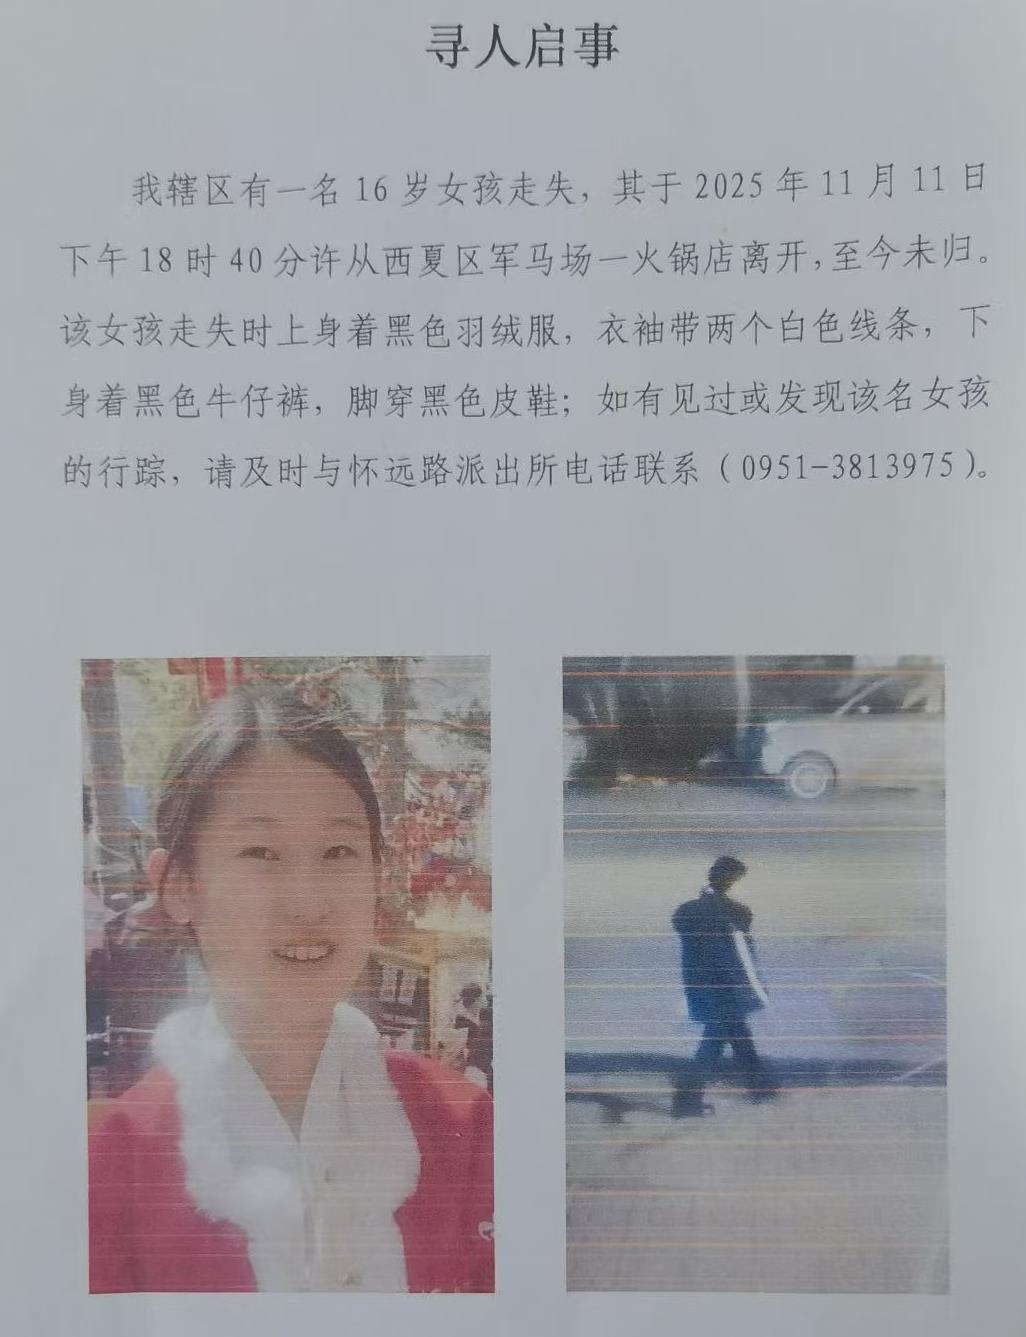 寻人启事
我辖区有一名 16 岁女孩走失，其于 2025 年 11 月 11 日
下午 18 时 40 分许从西夏区军马场一火锅店离开，至今未归。
该女孩走失时上身着黑色羽绒服，衣袖带两个白色线条，下
身着黑色牛仔裤，脚穿黑色皮鞋；如有见过或发现该名女孩
的行踪，请及时与怀远路派出所电话联系（0951-3813975）。